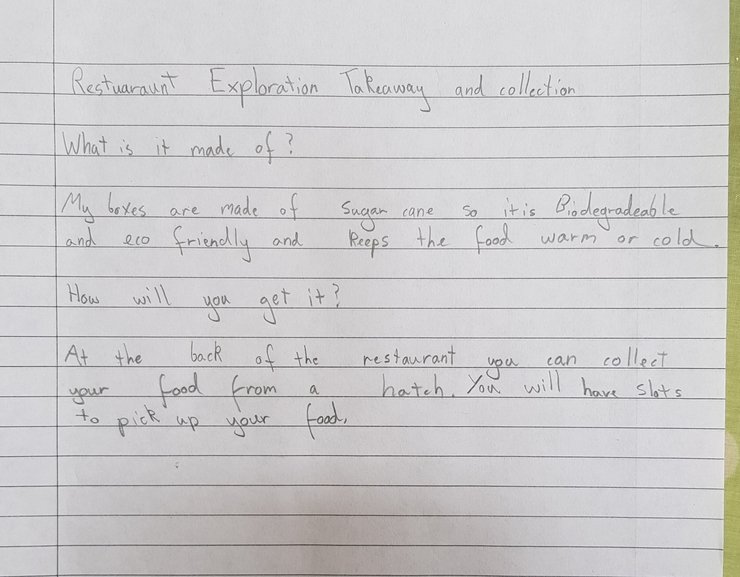 Restuaraunt Exploration Takeaway and collection
What is it made of?
My boxes are made of Sugar cane so it is Biodegradeable
and eco friendly and keeps the food warm or cold.
How will you get it?
At the back of the restaurant you can collect
your food from a hatch. You will have slots
to pick up your food.